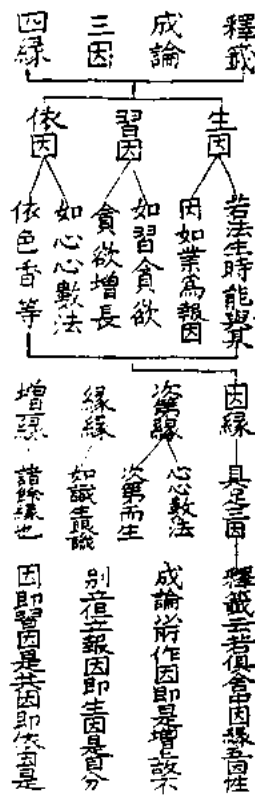 釋籤
成論
三因
四緣
生因
若法生時能與其
因如業爲報因
習因
如習貪欲
貪欲增長
依因
如心心數法
依色香等
因緣
具足三因
釋籤云若俱舍中因緣五因性
次第緣
心心數法
次第而生
成論前作因即是增上故不
緣緣
如識生眼識
別立但立報因即生因是自分
增緣
諸餘緣也
因即習因是共因即依因是